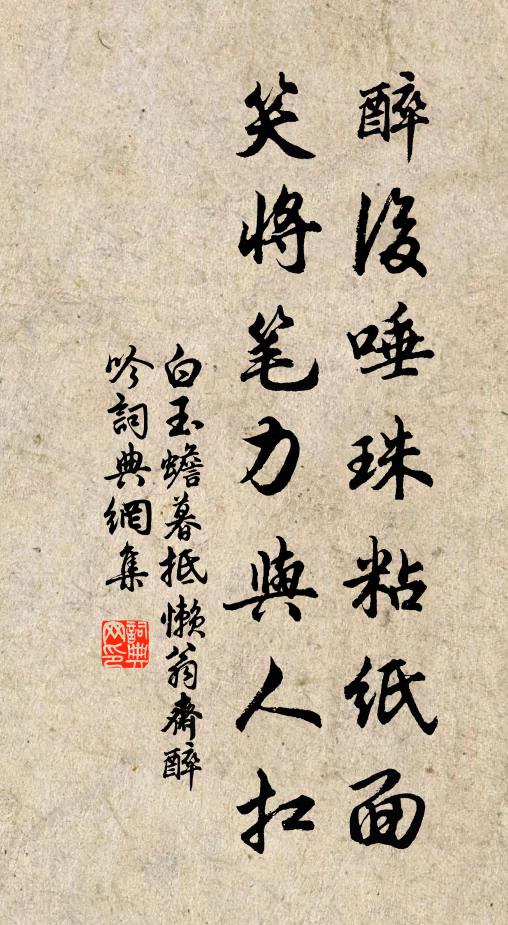 醉後唾珠粘纸面
笑將笔力與人扛
白玉蟾暮抵懒翁齋醉
吟詞典網集
詞典网印